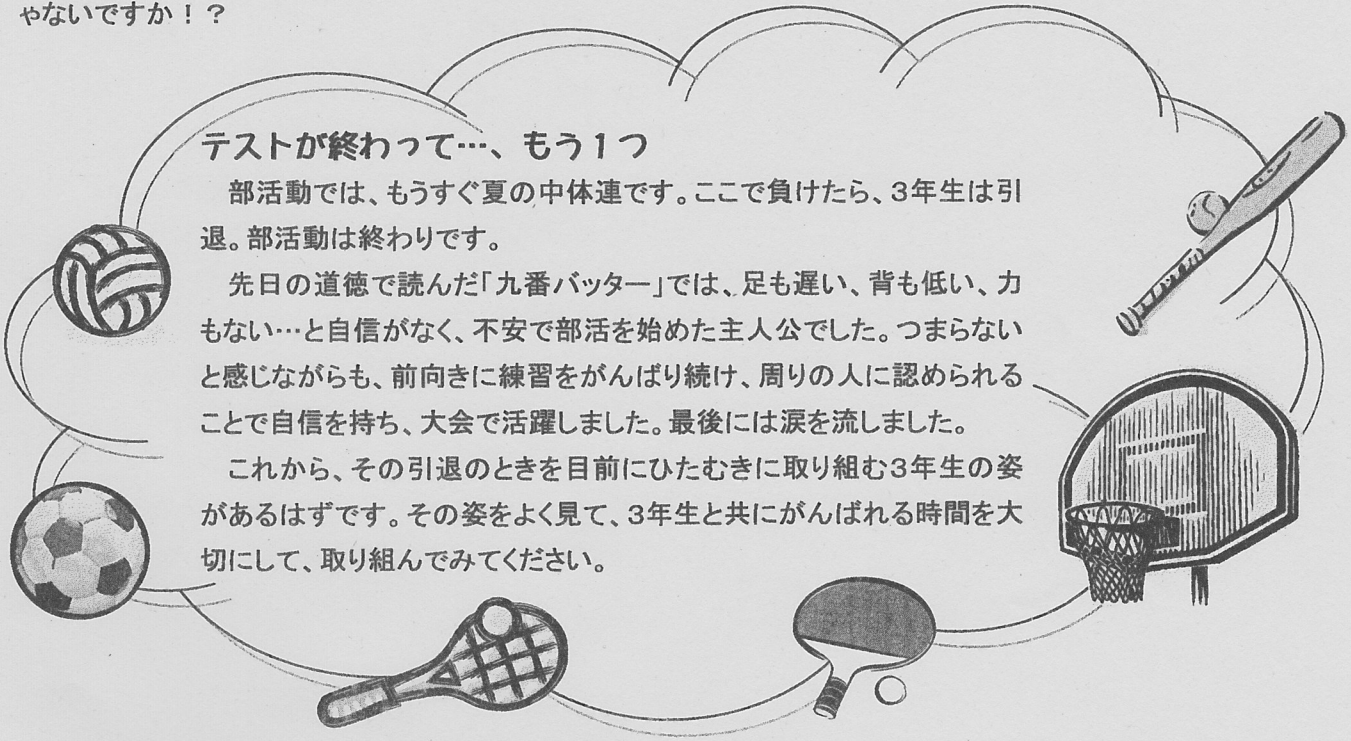 ゃないですか！？
テストが終わって…、もう１つ
部活動では、もうすぐ夏の中体連です。ここで負けたら、３年生は引
退。部活動は終わりです。
先日の道徳で読んだ「九番バッター」では、足も遅い、背も低い、力
もない…と自信がなく、不安で部活を始めた主人公でした。つまらない
と感じながらも、前向きに練習をがんばり続け、周りの人に認められる
ことで自信を持ち、大会で活躍しました。最後には涙を流しました。
これから、その引退のときを目前にひたむきに取り組む３年生の姿
があるはずです。その姿をよく見て、３年生と共にがんばれる時間を大
切にして、取り組んでみてください。